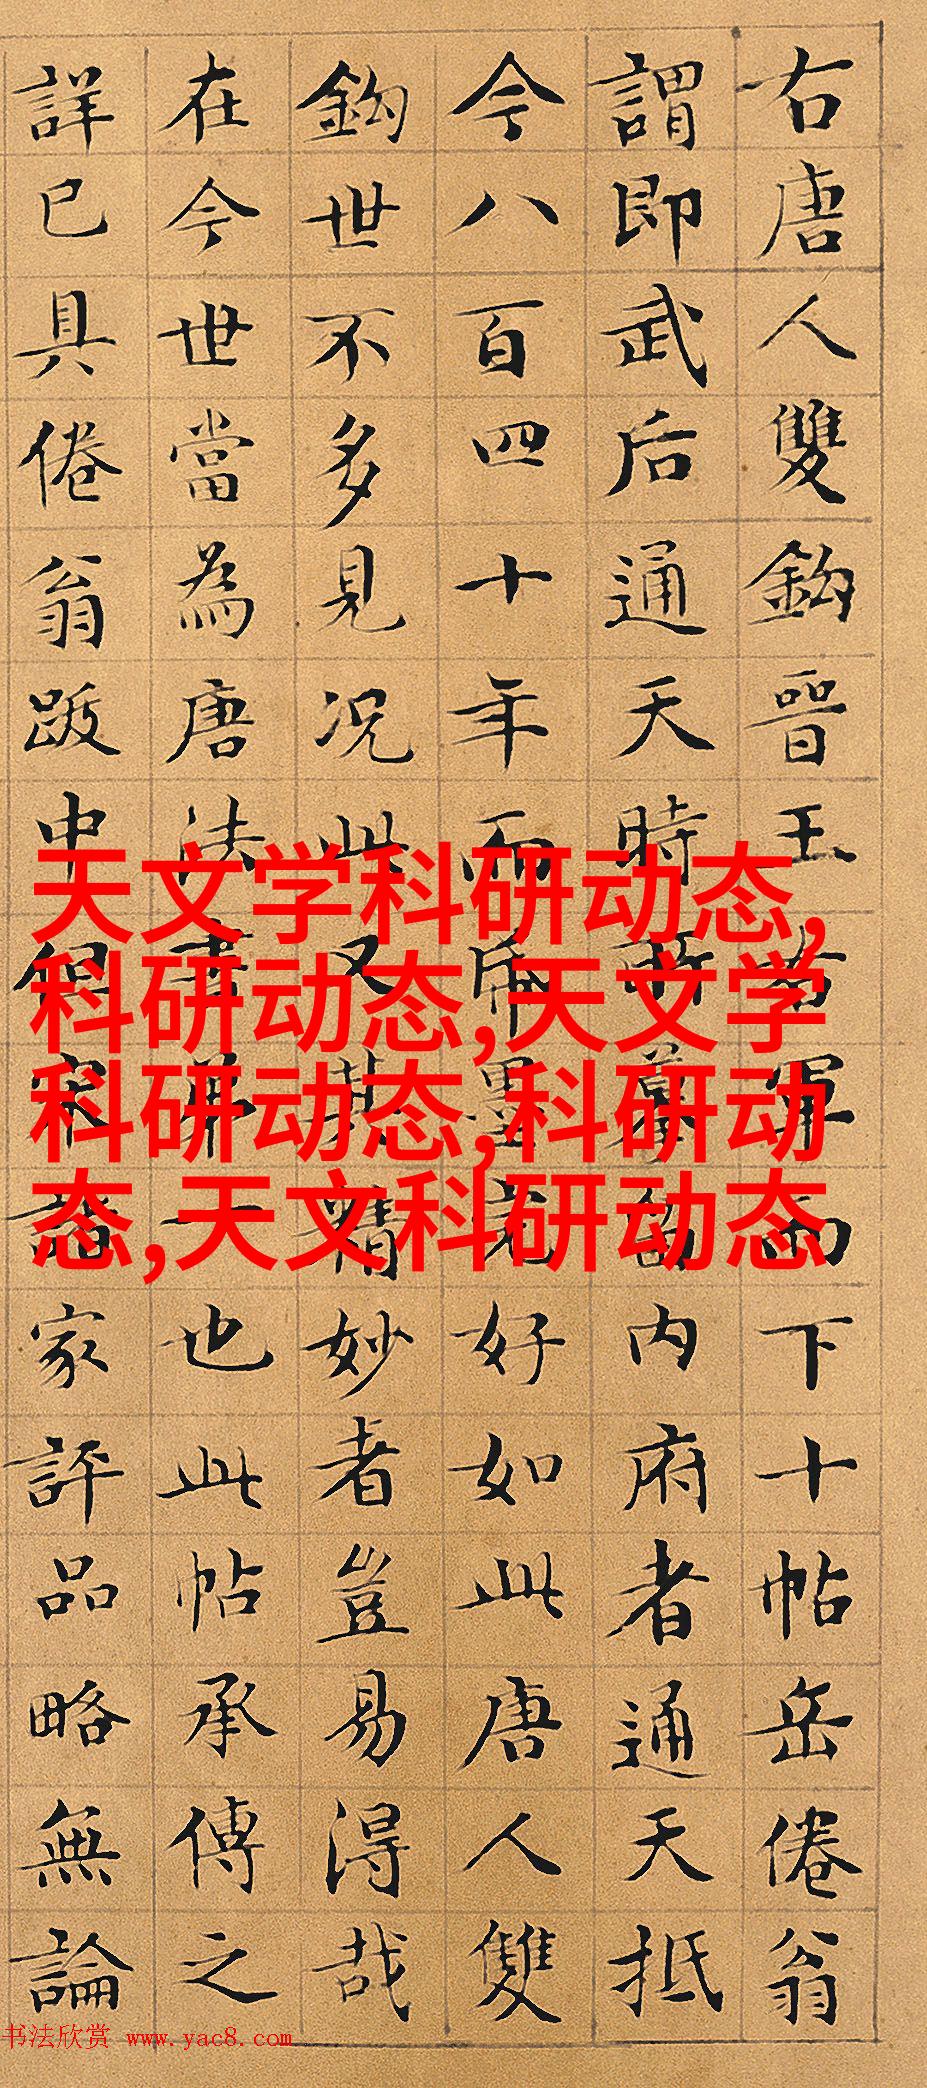 右唐人雙鈎晉王右軍而下十帖岳倦翁
謂即武后通天時所摹留内府者通天抵
今八百四十年而帋墨完好如此唐人雙
鈎世不多見况此又其精妙者豈易得哉
在今世當為唐法書第一也此帖承傳之
詳已具倦翁跋中但宋諸家評品略無論
天文学科研动态,
科研动态,天文学
科研动态,科研动
态,天文科研动态
书法欣赏 www.yac8.com